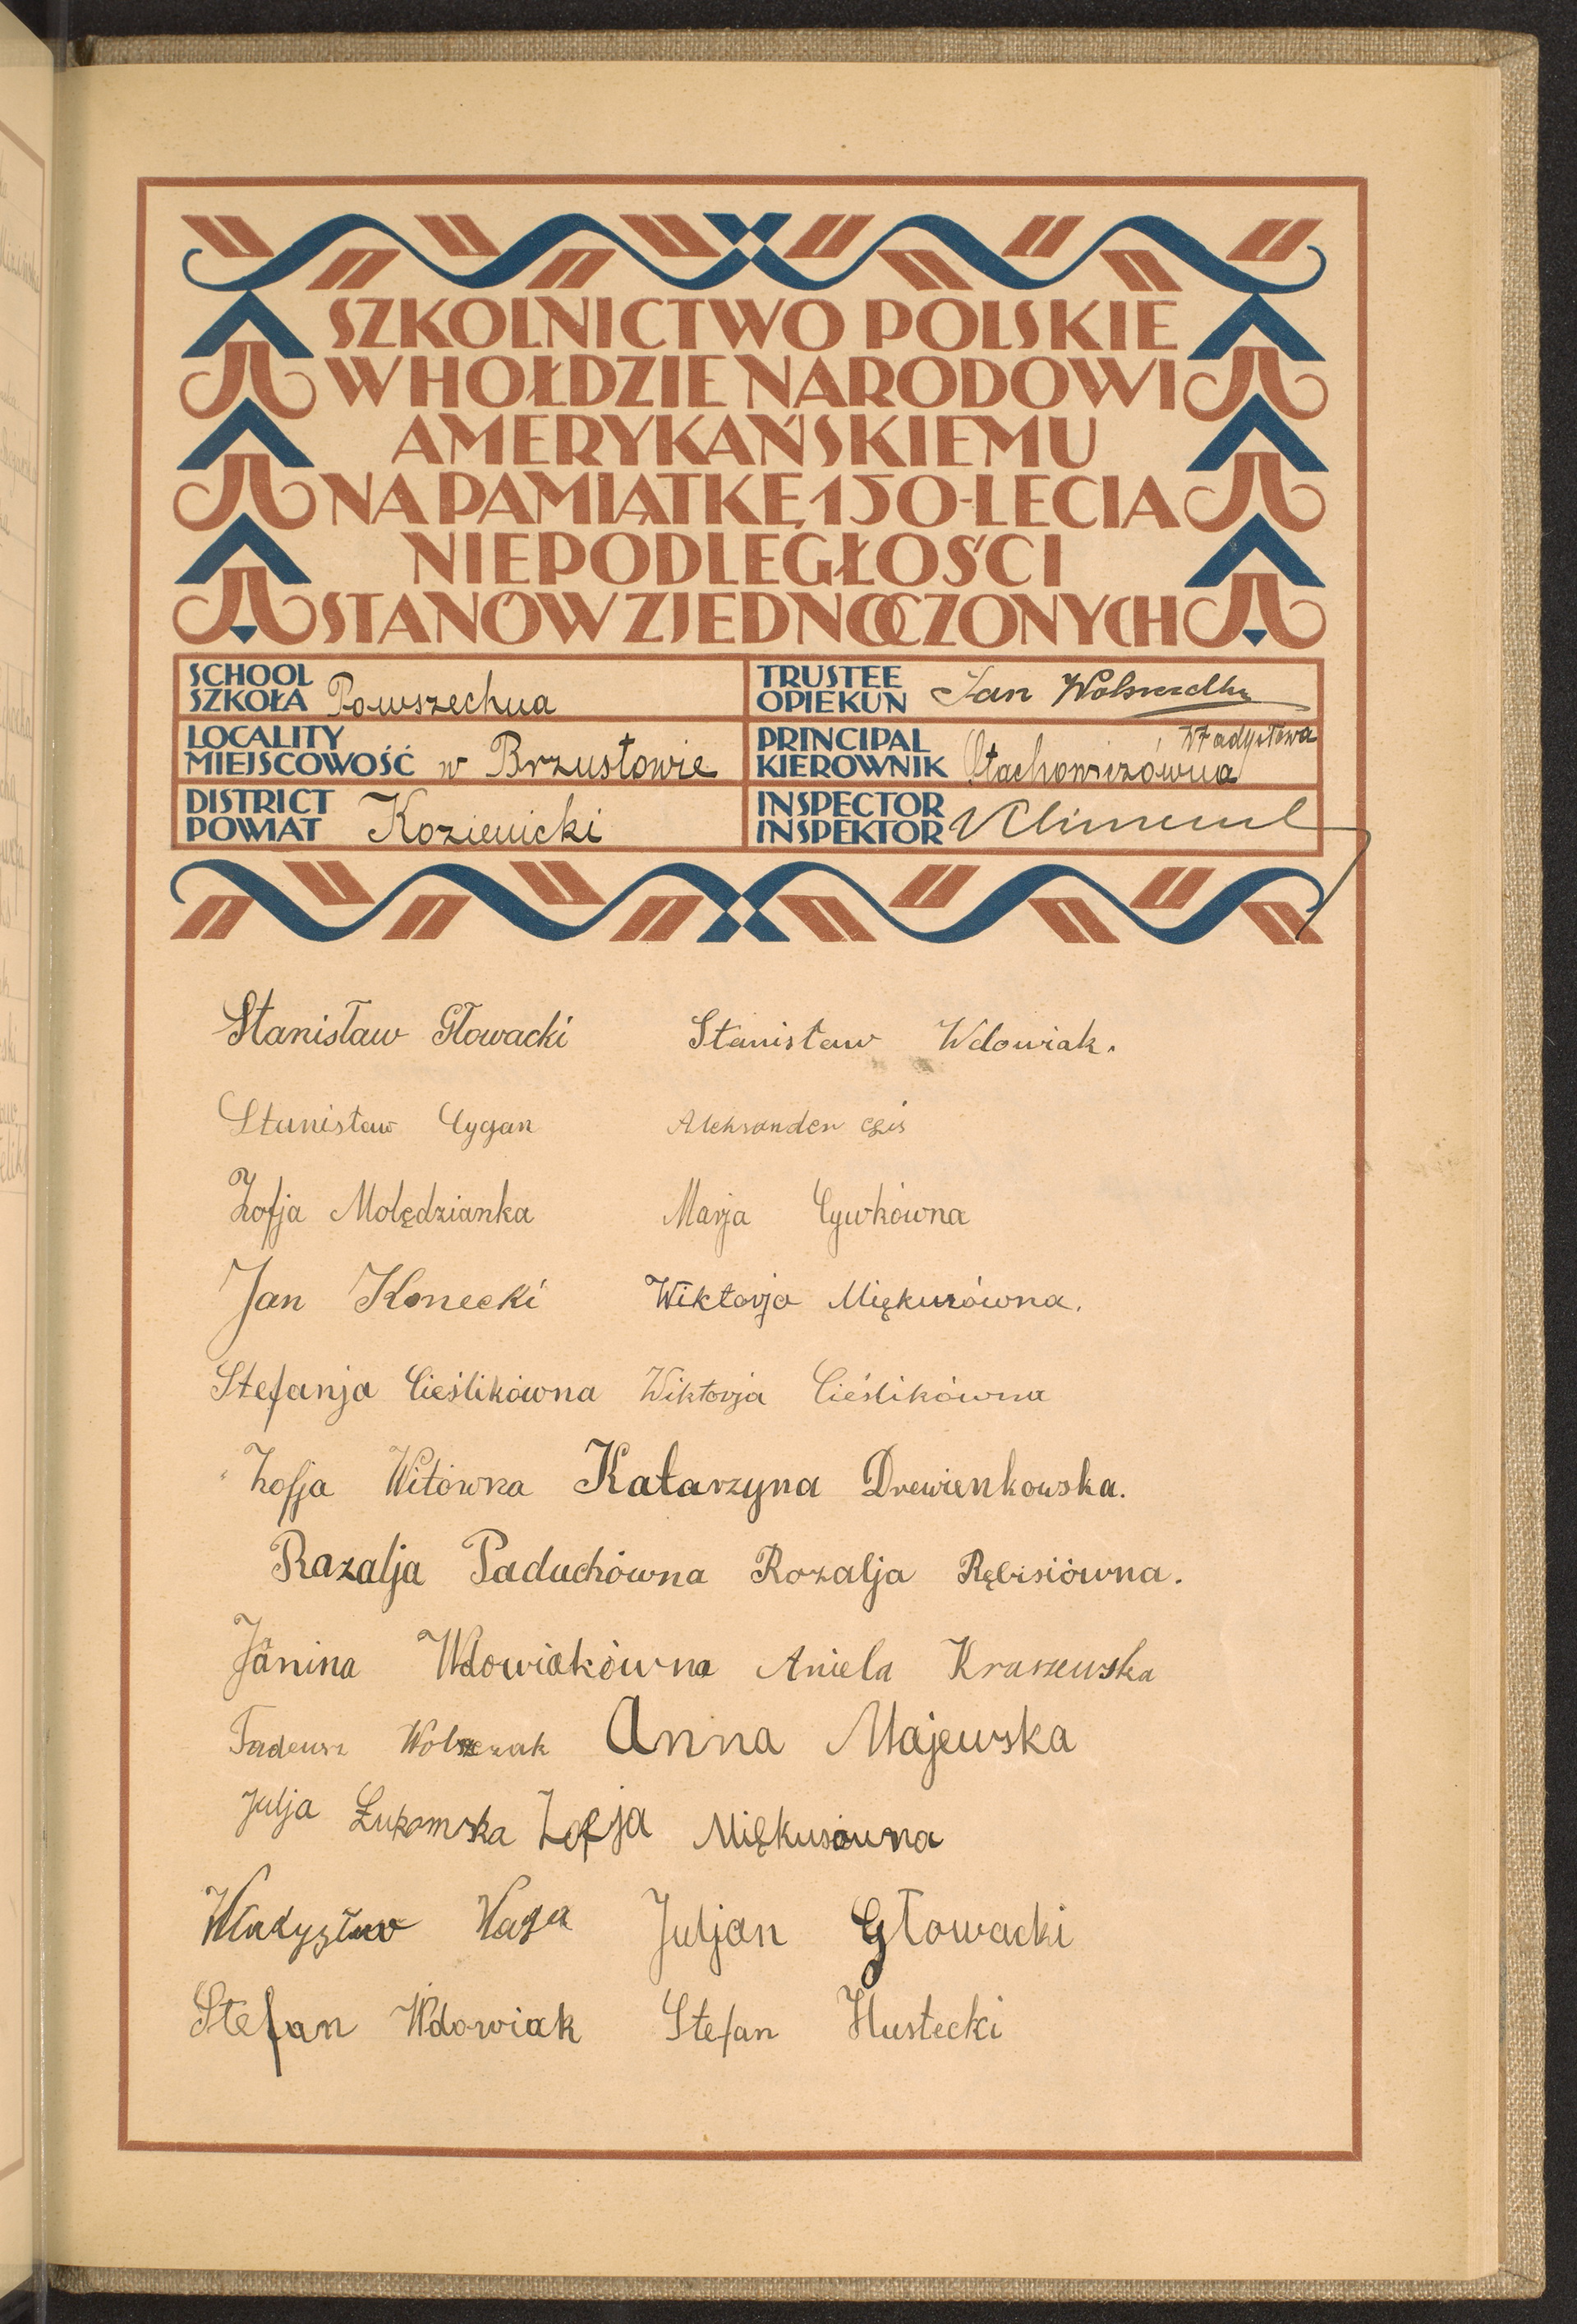 SZKOLNICTWO POLSKIE
W HOŁDZIE NARODOWI
AMERYKAŃSKIEMU
NA PAMIĄTKĘ 150-LECIA
NIEPODLEGŁOŚCI
STANÓW ZJEDNOCZONYCH
SCHOOL
SZKOŁA Powszechna
TRUSTEE
OPIEKUN Jan
LOCALITY
MIEJSCOWOŚĆ w Brzustowie
PRINCIPAL Władysława
KIEROWNIK Stachowiczówna
DISTRICT
POWIAT Kozienicki
INSPECTOR
INSPEKTOR
Stanisław Głowacki Stanisław Wdowiak.
Stanisław Cygan Aleksander
Zofja Molędzianka Marja Cywkówna
Jan Konecki Wiktorja Miękusówna.
Stefanja Cieślikówna Wiktorja Cieślikówna
Zofja Witówna Katarzyna Drewienkowska.
Razalja Paduchówna Rozalja Rębisiówna.
Janina Wdowiakówna Aniela Kraszewska
Tadeusz Anna Majewska
Julja Zofja Miękusówna
Władysław Waga Juljan Głowacki
Stefan Wdowiak Stefan Hustecki